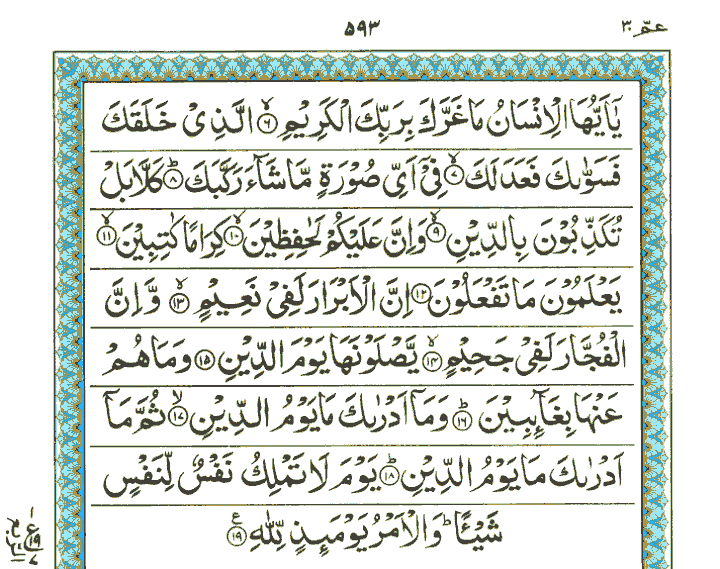 عمّ ٣٠
٥٩٣
يٰٓاَيُّهَا الْاِنْسَانُ مَا غَرَّكَ بِرَبِّكَ الْكَرِيْمِ ۙ﴿٦﴾ الَّذِيْ خَلَقَكَ
فَسَوّٰىكَ فَعَدَلَكَ ۙ﴿٧﴾ فِيْٓ اَيِّ صُوْرَةٍ مَّا شَآءَ رَكَّبَكَ ؕ﴿٨﴾ كَلَّا بَلْ
تُكَذِّبُوْنَ بِالدِّيْنِ ۙ﴿٩﴾ وَاِنَّ عَلَيْكُمْ لَحٰفِظِيْنَ ۙ﴿١٠﴾ كِرَامًا كٰتِبِيْنَ ۙ﴿١١﴾
يَعْلَمُوْنَ مَا تَفْعَلُوْنَ ﴿١٢﴾ اِنَّ الْاَبْرَارَ لَفِيْ نَعِيْمٍ ۙ﴿١٣﴾ وَّاِنَّ
الْفُجَّارَ لَفِيْ جَحِيْمٍ ۙ﴿١٤﴾ يَّصْلَوْنَهَا يَوْمَ الدِّيْنِ ﴿١٥﴾ وَمَا هُمْ
عَنْهَا بِغَآئِبِيْنَ ؕ﴿١٦﴾ وَمَآ اَدْرٰىكَ مَا يَوْمُ الدِّيْنِ ۙ﴿١٧﴾ ثُمَّ مَآ
اَدْرٰىكَ مَا يَوْمُ الدِّيْنِ ؕ﴿١٨﴾ يَوْمَ لَا تَمْلِكُ نَفْسٌ لِّنَفْسٍ
شَيْـًٔا ؕ وَالْاَمْرُ يَوْمَئِذٍ لِّلّٰهِ ﴿١٩﴾ ع